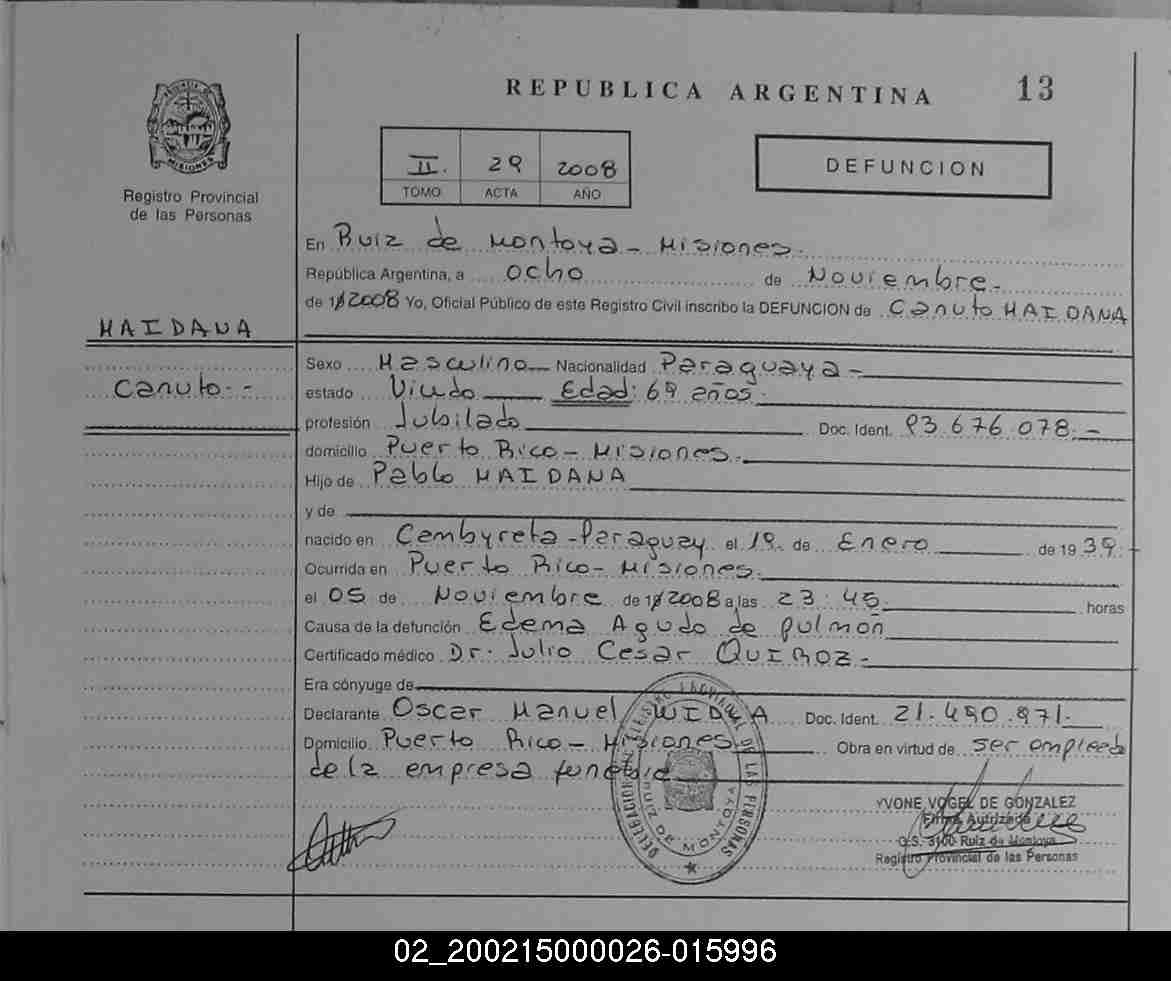 REPUBLICA ARGENTINA 13
PROVINCIA DE MISIONES
Registro Provincial
de las Personas
II. 29 2008
TOMO ACTA AÑO
DEFUNCION
En Ruiz de Montoya - Misiones.
República Argentina, a ocho de Noviembre.
de 19 2008 Yo, Oficial Público de este Registro Civil inscribo la DEFUNCION de Canuto MAIDANA
MAIDANA
Canuto.-
Sexo Masculino Nacionalidad Paraguaya -
estado Viudo Edad: 69 años.
profesión Jubilado Doc. Ident. 93.676.078.-
domicilio Puerto Rico - Misiones.
Hijo de Pablo MAIDANA
y de
nacido en Cambyreta - Paraguay el 19 de Enero de 1939.
Ocurrida en Puerto Rico - Misiones.
el 05 de Noviembre de 19 2008 a las 23:45 horas
Causa de la defunción Edema Agudo de pulmón
Certificado médico Dr. Julio Cesar QUIROZ.-
Era cónyuge de
Declarante Oscar Manuel Doc. Ident. 21.490.971.
Domicilio Puerto Rico - Misiones Obra en virtud de ser empleado
de la empresa funebre
DELEGACION DEL REGISTRO PROVINCIAL DE LAS PERSONAS
RUIZ DE MONTOYA
YVONE VOGEL DE GONZALEZ
Firma Autrizada
O.S. 3100 Ruiz de Montoya
Registro Provincial de las Personas
02_200215000026-015996